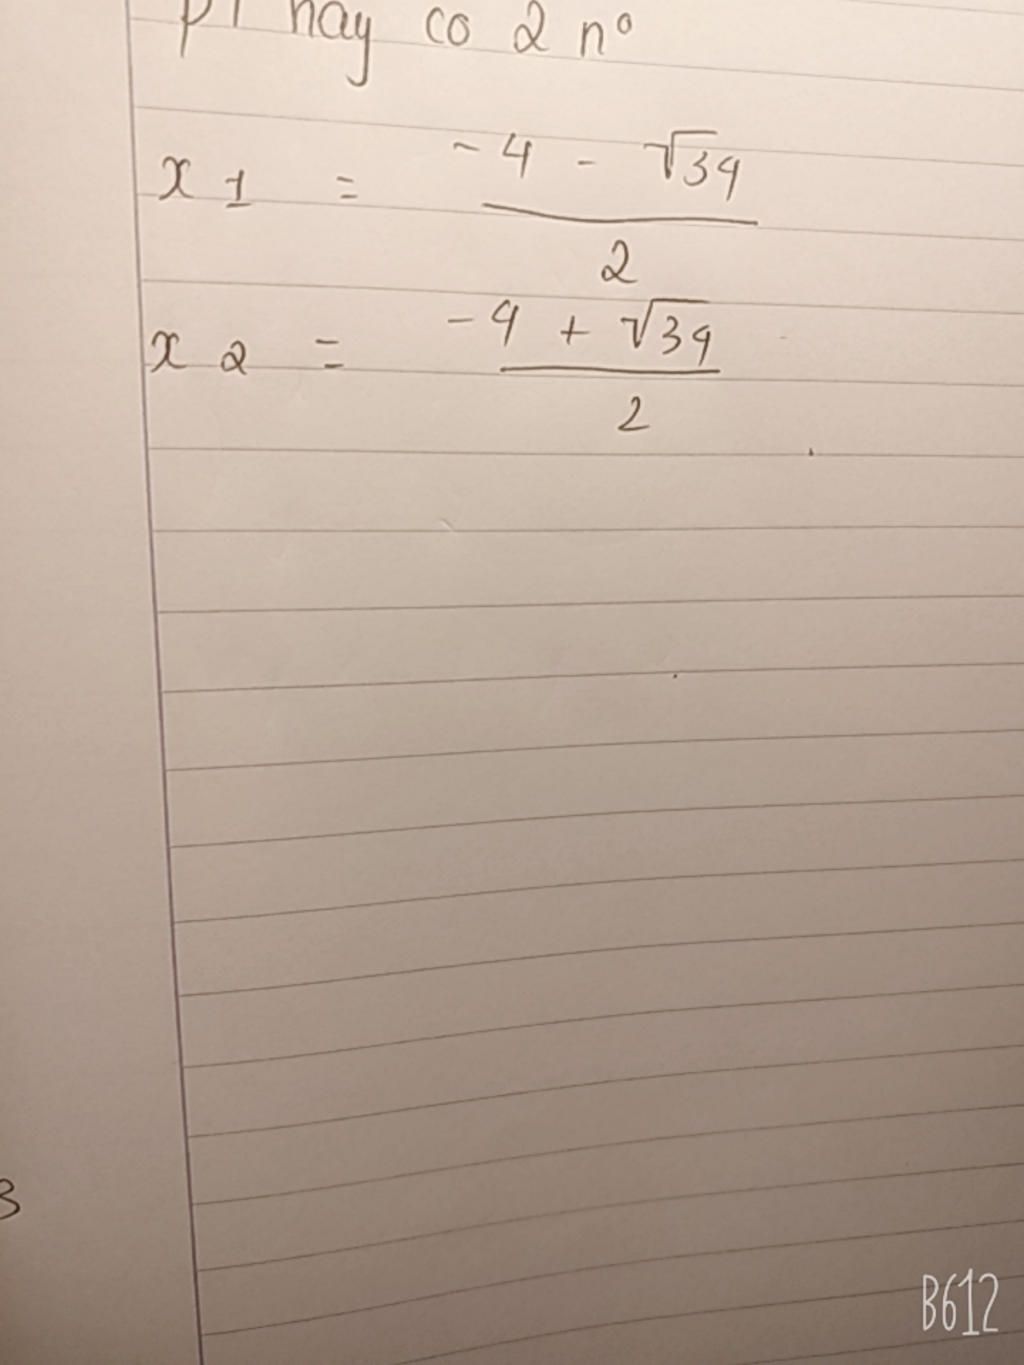 pt này có 2 nº
x1 = -4 - √34 / 2
x2 = -4 + √34 / 2
3
B612